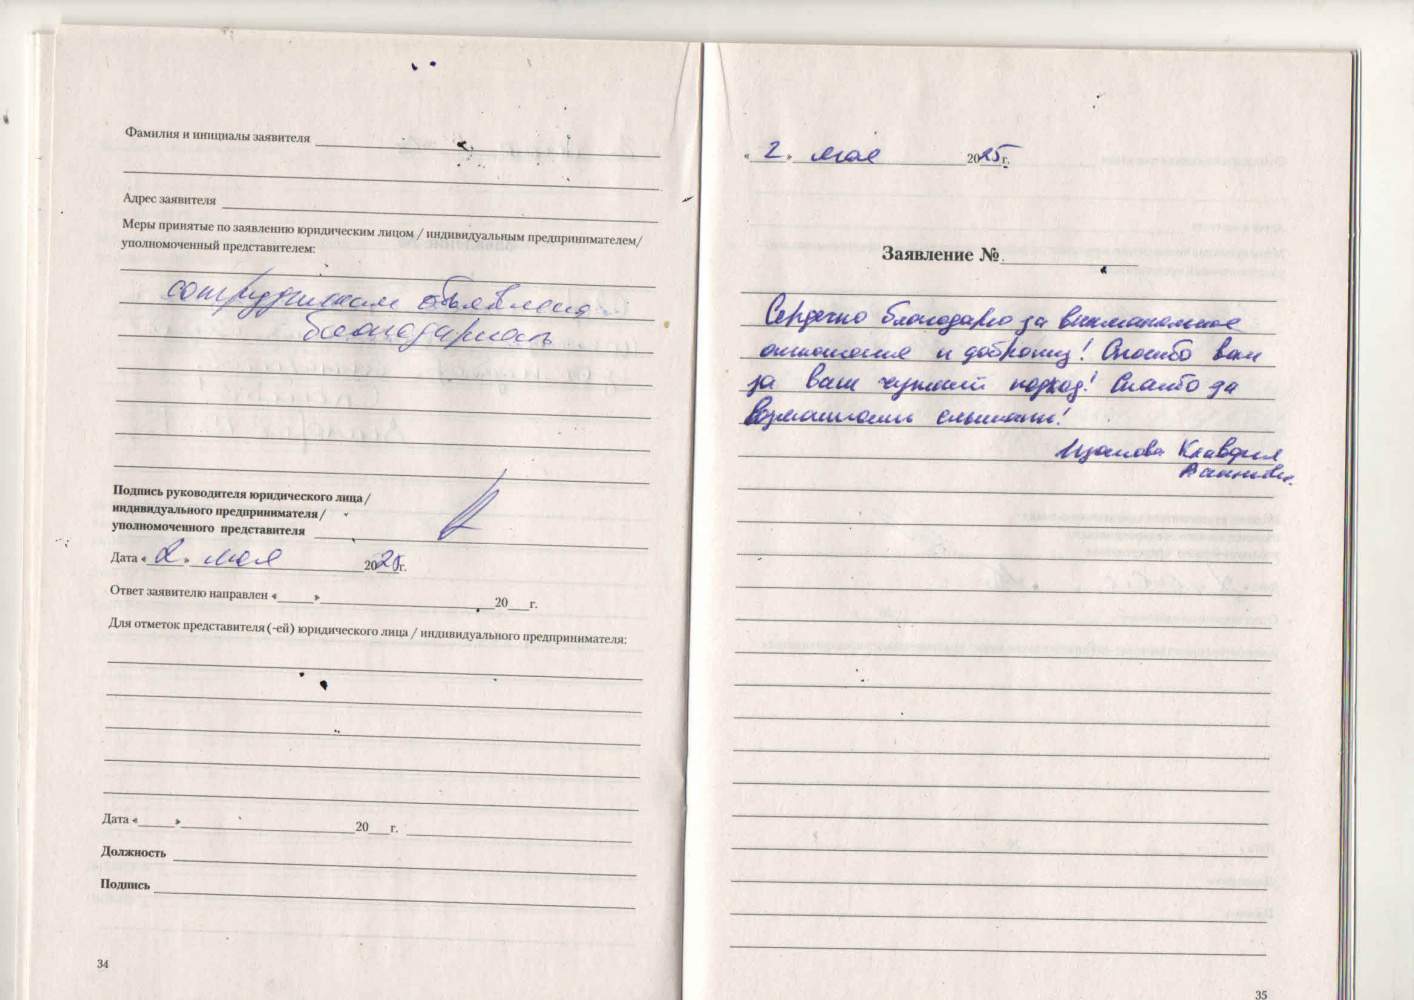 Фамилия и инициалы заявителя
Адрес заявителя
Меры принятые по заявлению юридическим лицом / индивидуальным предпринимателем/
уполномоченный представителем:
сотрудникам объявлена
благодарность
Подпись руководителя юридического лица /
индивидуального предпринимателя /
уполномоченного представителя
Дата «2» мая 2025г.
Ответ заявителю направлен «» 20 г.
Для отметок представителя(-ей) юридического лица / индивидуального предпринимателя:
Дата «» 20 г.
Должность
Подпись
34
«2» мая 2025г.
Заявление №
Сердечно благодарю за внимательное
отношение и доброту! Спасибо вам
за ваш чуткий подход! Спасибо за
возможность слышать!
Клавдия
35